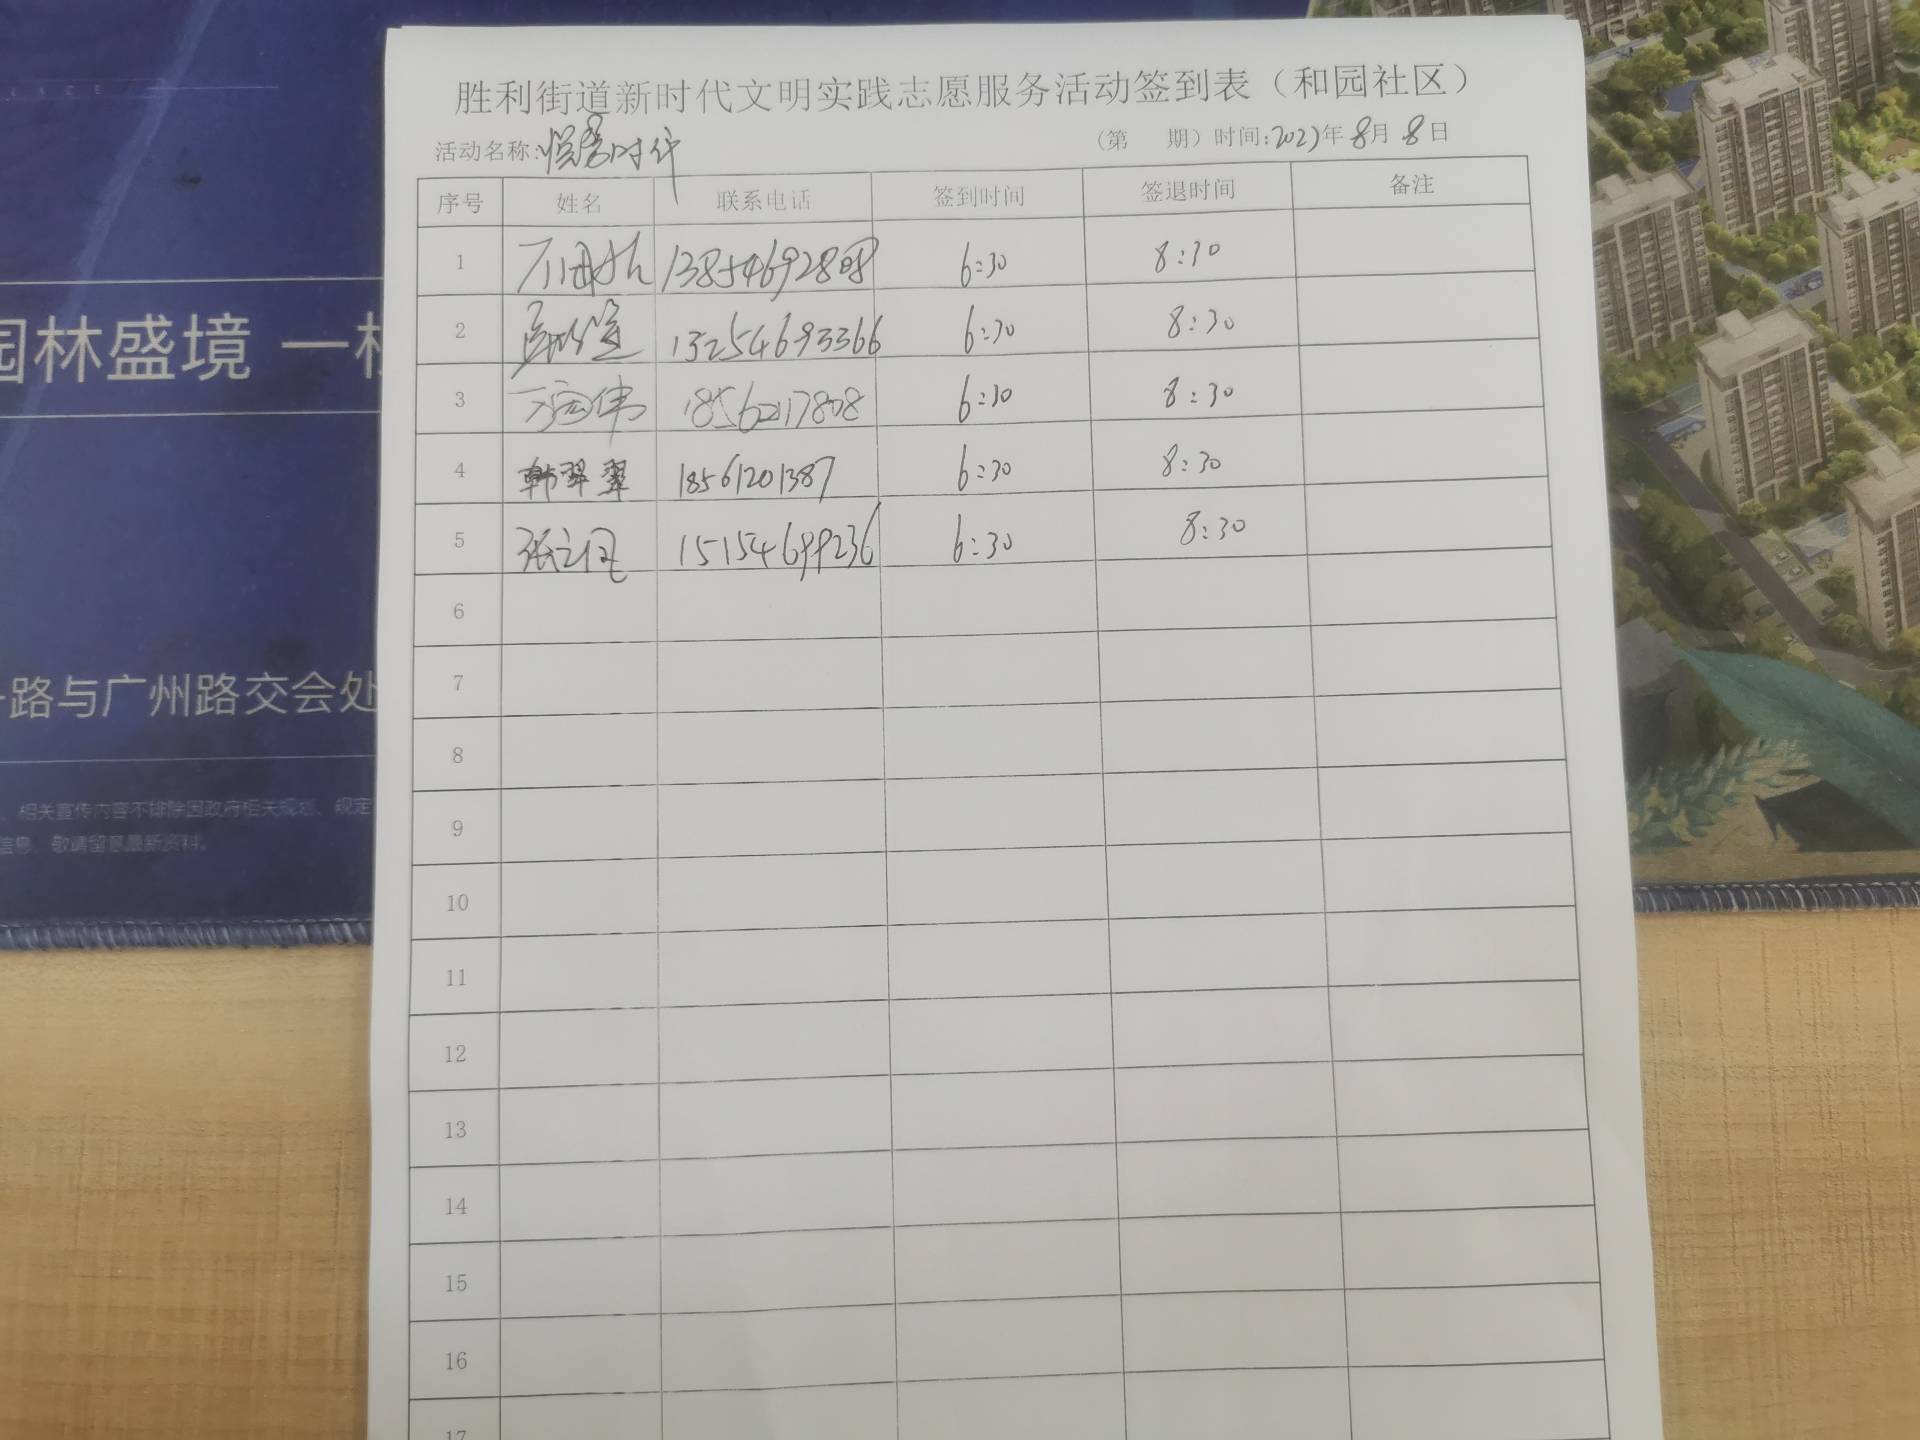 胜利街道新时代文明实践志愿服务活动签到表（和园社区）
活动名称: 时代
（第 期）时间:2023年8月8日
序号 姓名 联系电话 签到时间 签退时间 备注
1 6:30 8:30
2 13254693366 6:30 8:30
3 18562117808 6:30 8:30
4 韩翠翠 18561201387 6:30 8:30
5 15154699236 6:30 8:30
6
7
8
9
10
11
12
13
14
15
16
17
园林盛境 一
路与广州路交会处
相关宣传内容不排除因政府相关规划、规定
信息，敬请留意最新资料。